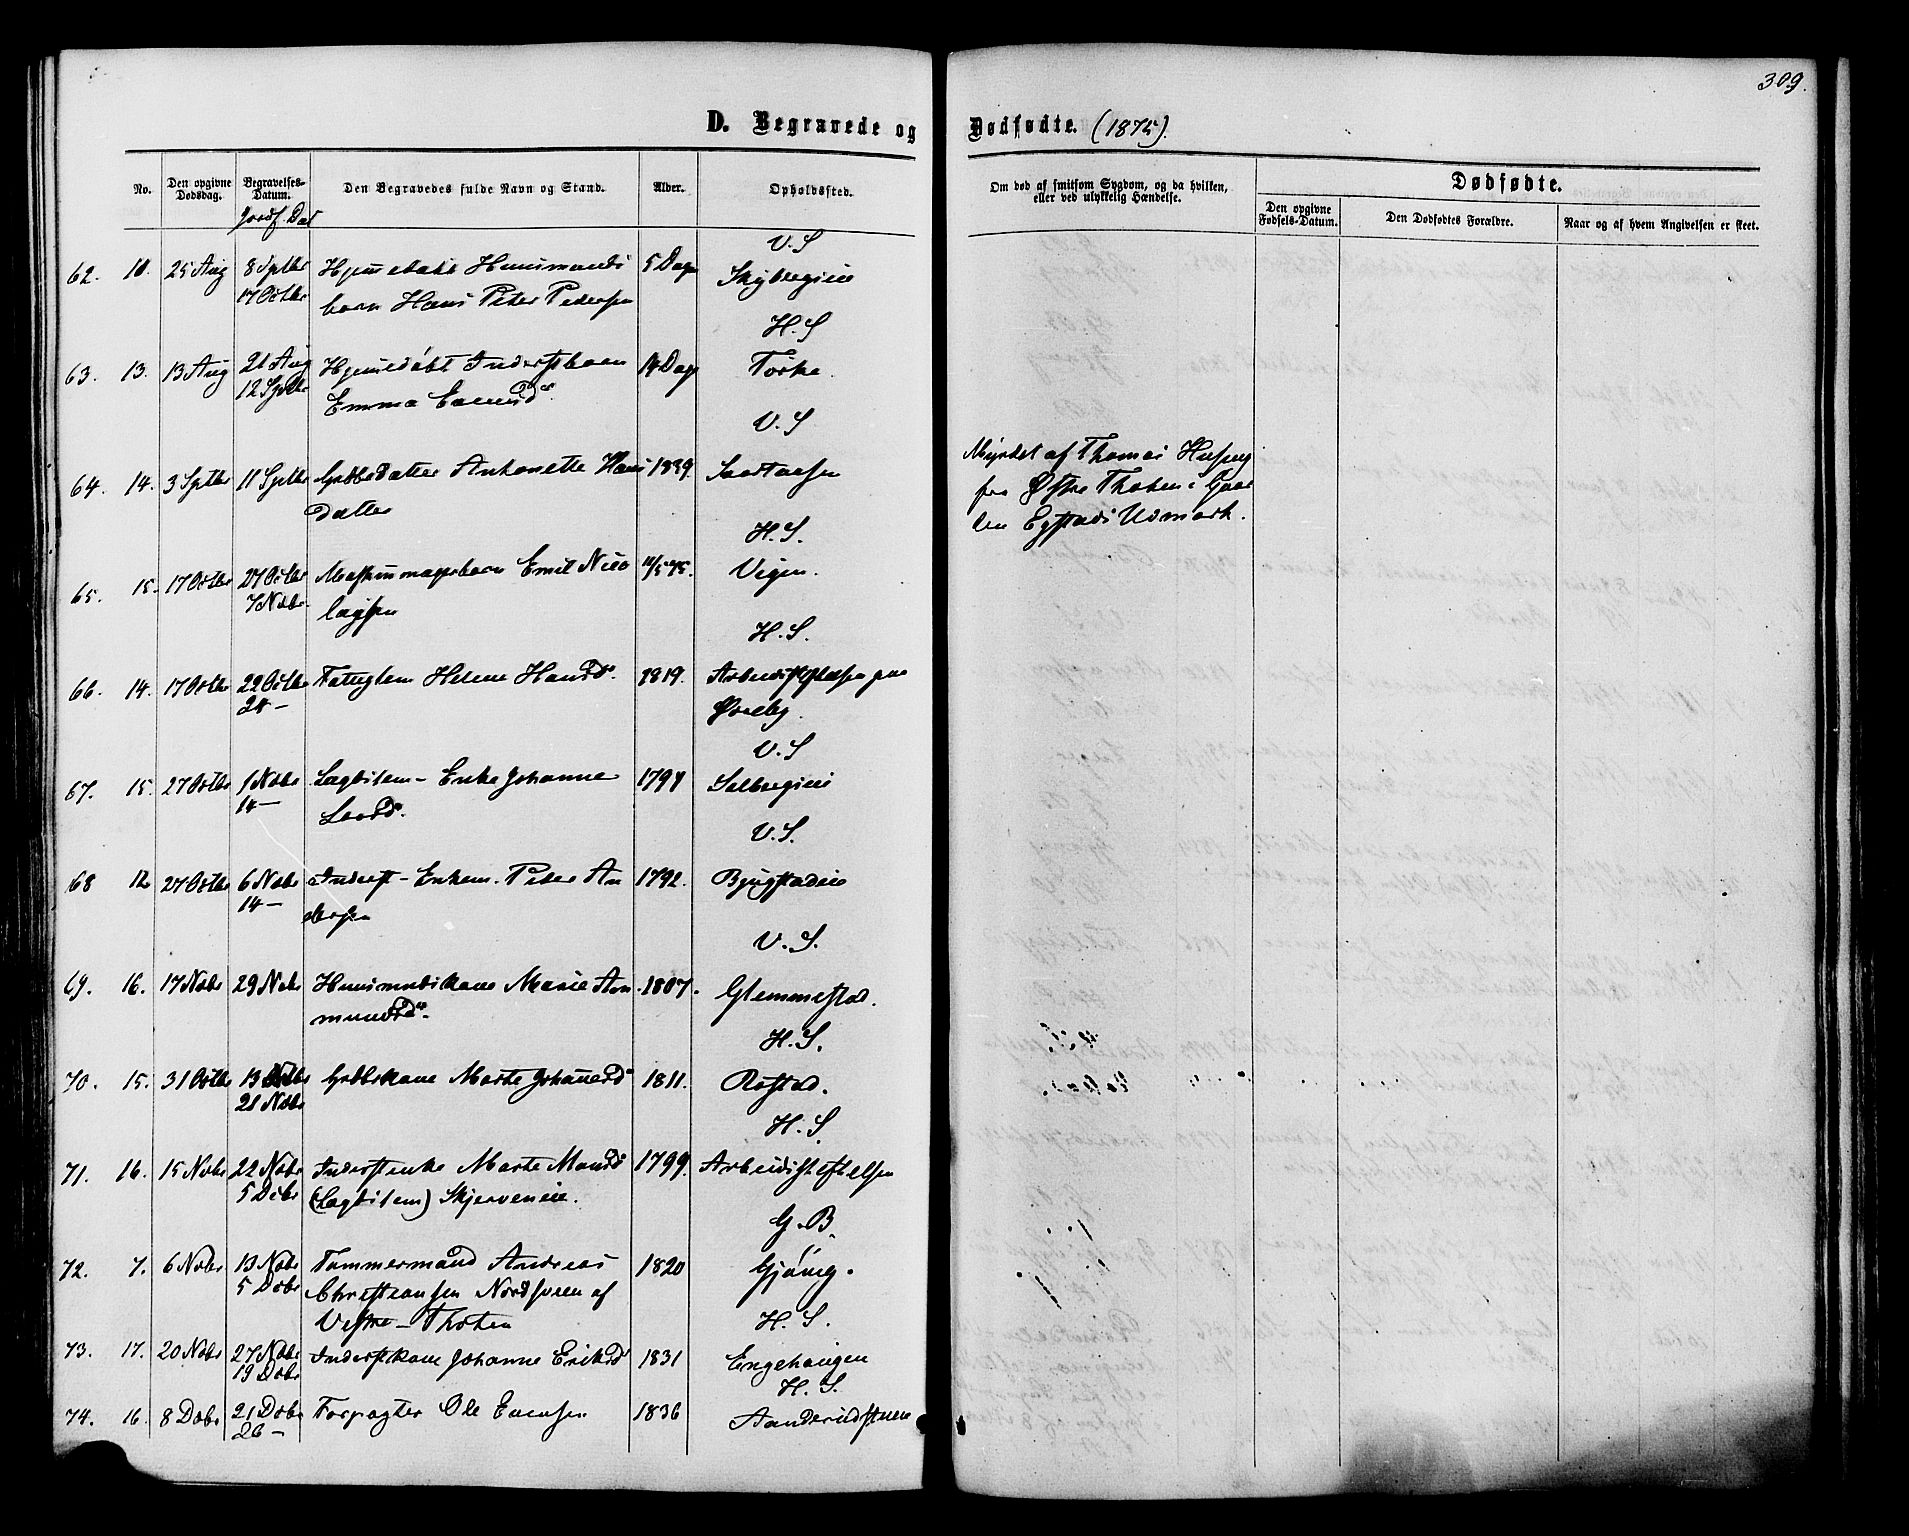 309.
D. Begravede og Dødfødte. (1875).
No.
Den opgivne Dødsdag.
Begravelses-Datum.
Jordf. Dat
Den Begravedes fulde Navn og Stand.
Alder.
Opholdssted.
Om død af smitsom Sygdom, og da hvilken, eller ved ulykkelig Hændelse.
Dødfødte.
Den opgivne Fødsels-Datum.
Den Dødfødtes Forældre.
Naar og af hvem Angivelsen er skeet.
V. S
62. 10. 25 Aug 8 Sptbr Hjemedøbt Huusmands 5 Dage Skybergeie
17 Octbr barn Hans Peter Pedersen
H. S
63. 13. 13 Aug 21 Aug Hjemedøbt Inderstbarn 14 Dage
12 Sptbr Emma
V. S
64. 14. 3 Sptbr 11 Sptbr Gdbrdatter Antonette Hans 1839
datter
Myrdet af Thomas
fra Østre Thoten i Gaar
den Egstads Udmark.
H. S.
65. 15. 17 Octbr 27 Octbr Emil Nico 75. Vigen.
7 Novbr laysen
H. S.
66. 14. 17 Octbr 22 Octbr Fatuglem Helene Hansd. 1819. paa
24 —
V. S
67. 15. 27 Octbr 1 Novbr Lægdslem – Enke Johanne Solbergeie
14 — Larsd.
V. S.
68 12 27 Octbr 6 Novbr Inderst – Enkem. Peter An 1792.
14 — dersen
V. S.
69. 16. 17 Novbr 29 Novbr Huusmandskone Marie Am 1807. Glemmestad.
mundsd.
H. S.
70. 15. 31 Octbr 13 Gdbrkone Marte 1811. Røstad.
21 Novbr
H. S.
71. 16. 15 Novbr 22 Novbr Inderstenke Marte 1799. Arbeidsstiftelsen
5 Debr (Lægdslem) Skjerveneie.
G. B.
72. 7. 6 Novbr 13 Novbr Tømmermand Andreas 1820 Gjøvig.
5 Debr Christiansen Nordsveen af
Vestre – Thoten
H. S.
73. 17. 20 Novbr 27 Novbr Inderstkone Johanne Eriksd 1831 Engehaugen
19 Debr
H. S.
74. 16. 8 Debr 21 Debr Forpagter Ole Evensen 1836
26 —